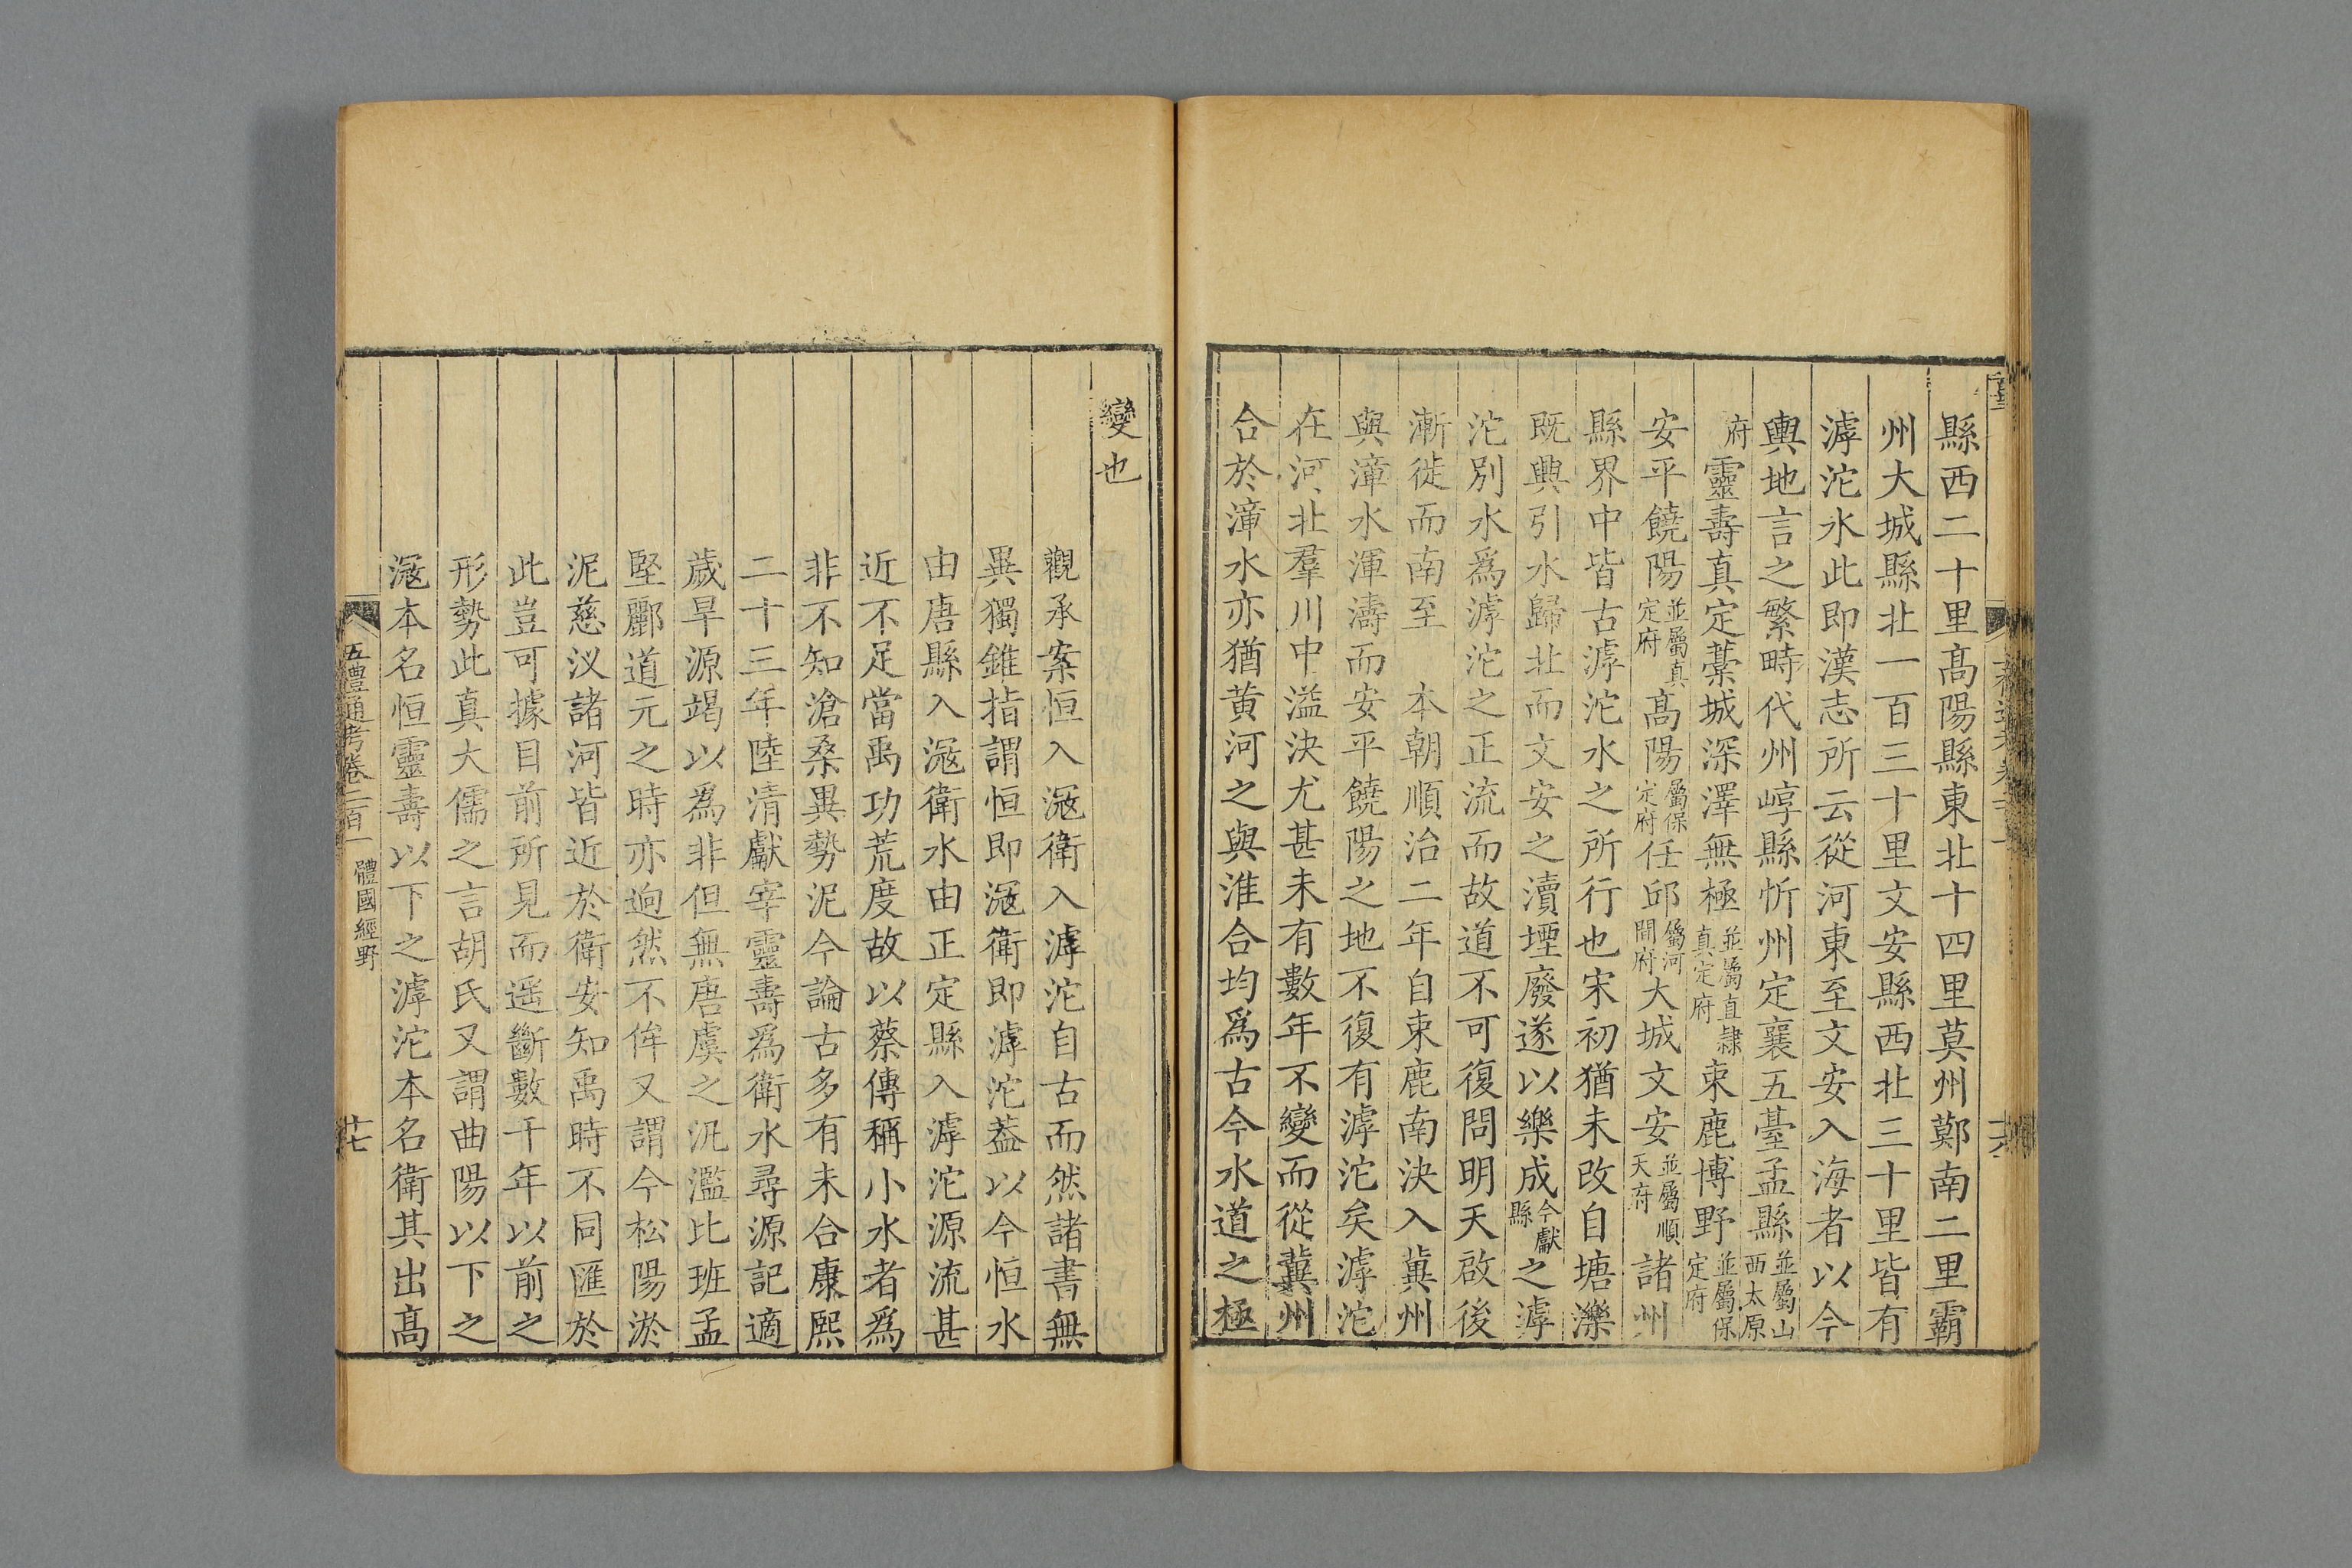 縣西二十里髙陽縣東北十四里莫州鄭南二里霸
州大城縣北一百三十里文安縣西北三十里皆有
滹沱水此即漢志所云從河東至文安入海者以今
輿地言之繁畤代州崞縣忻州定襄五臺孟縣並屬山西太原
府靈壽真定藁城深澤無極並屬直隸真定府束鹿博野並屬保定府
安平饒陽並屬真定府髙陽屬保定府任邱屬河間府大城文安並屬順天府諸州
縣界中皆古滹沱水之所行也宋初猶未改自塘濼
既興引水歸北而文安之瀆堙廢遂以樂成今獻縣之滹
沱別水爲滹沱之正流而故道不可復問明天啟後
漸徙而南至　本朝順治二年自束鹿南決入冀州
與漳水渾濤而安平饒陽之地不復有滹沱矣滹沱
在河北羣川中溢決尤甚未有數年不變而從冀州
合於漳水亦猶黄河之與淮合均爲古今水道之極
變也
觀承案恒入滱衛入滹沱自古而然諸書無
異獨錐指謂恒即滱衛即滹沱葢以今恒水
由唐縣入滱衛水由正定縣入滹沱源流甚
近不足當禹功荒度故以蔡傳稱小水者爲
非不知滄桑異勢泥今論古多有未合康熙
二十三年陸清獻宰靈壽爲衛水尋源記適
歲旱源竭以爲非但無唐虞之汎濫比班孟
堅酈道元之時亦逈然不侔又謂今松陽淤
泥慈汊諸河皆近於衛安知禹時不同匯於
此豈可據目前所見而遥斷數千年以前之
形勢此真大儒之言胡氏又謂曲陽以下之
滱本名恒靈壽以下之滹沱本名衛其出髙
五禮通考卷二百一　體國經野　十七